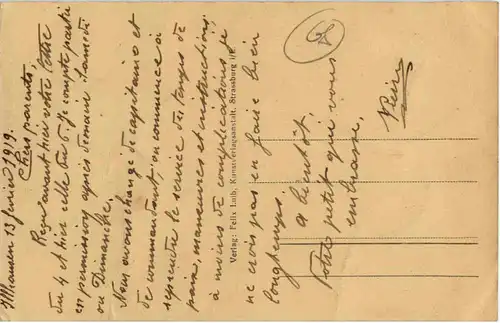 Illhausen 13 février 1919.
Chers parents,
Reçu avant hier votre lettre
du 4 et hier celle du 6. Je compte partir
en permission après demain Samedi
ou Dimanche.
Nous avons changé de capitaine et
de commandant, on commence à
reprendre le service du temps de
paix, manœuvres et instructions;
à moins de complications je
ne crois pas en faire bien
longtemps.
à bientôt!
Votre petit qui vous
embrasse,
Verlag: Felix Luib, Kunstverlagsanstalt, Strassburg i/E.